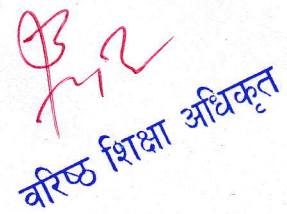 वरिष्ठ शिक्षा अधिकृत